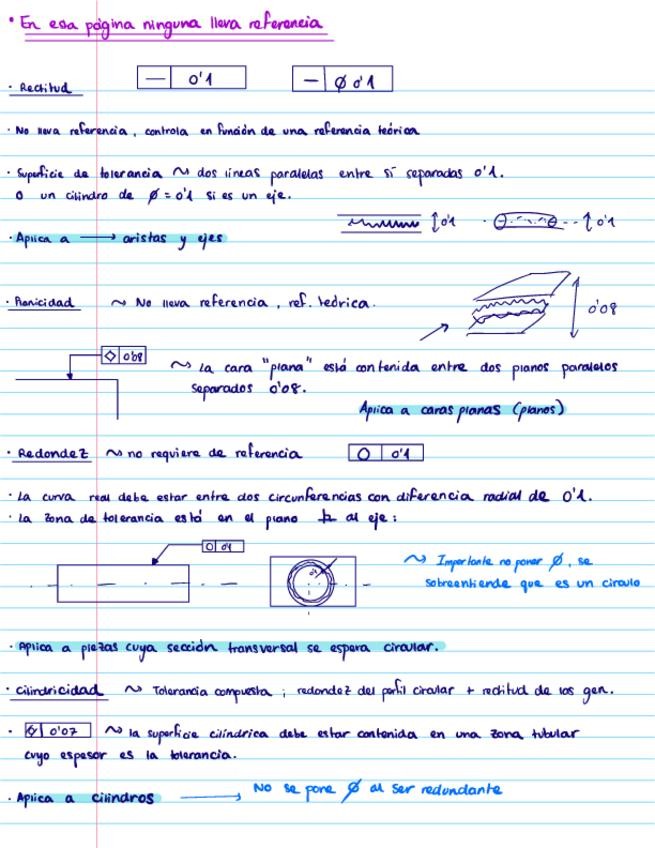 • En esa página ninguna lleva referencia
· Rectitud — 0'1 — Ø 0'1
· No lleva referencia, controla en función de una referencia teórica
· Superficie de tolerancia ~ dos líneas paralelas entre sí separadas 0'1.
O un cilindro de Ø = 0'1 si es un eje.
0'1 0'1
· Aplica a → aristas y ejes
· Planicidad ~ No lleva referencia, ref. teórica.
0'08
0'08 ~ La cara "plana" está contenida entre dos planos paralelos
separados 0'08.
Aplica a caras planas (planos)
· Redondez ~ no requiere de referencia ○ 0'1
· La curva real debe estar entre dos circunferencias con diferencia radial de 0'1.
· La zona de tolerancia está en el plano ⊥ al eje:
○ 0'1
0'1
~ Importante no poner Ø, se
sobreentiende que es un círculo
· Aplica a piezas cuya sección transversal se espera circular.
· Cilindricidad ~ Tolerancia compuesta ; redondez del perfil circular + rectitud de las gen.
· ⌭ 0'07 ~ la superficie cilíndrica debe estar contenida en una zona tubular
cuyo espesor es la tolerancia.
· Aplica a cilindros → No se pone Ø al ser redundante